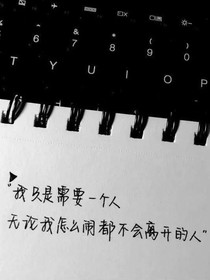 6 7 8 9 0
T Y U I O P
"我只是需要一个人
无论我怎么闹都不会离开的人"